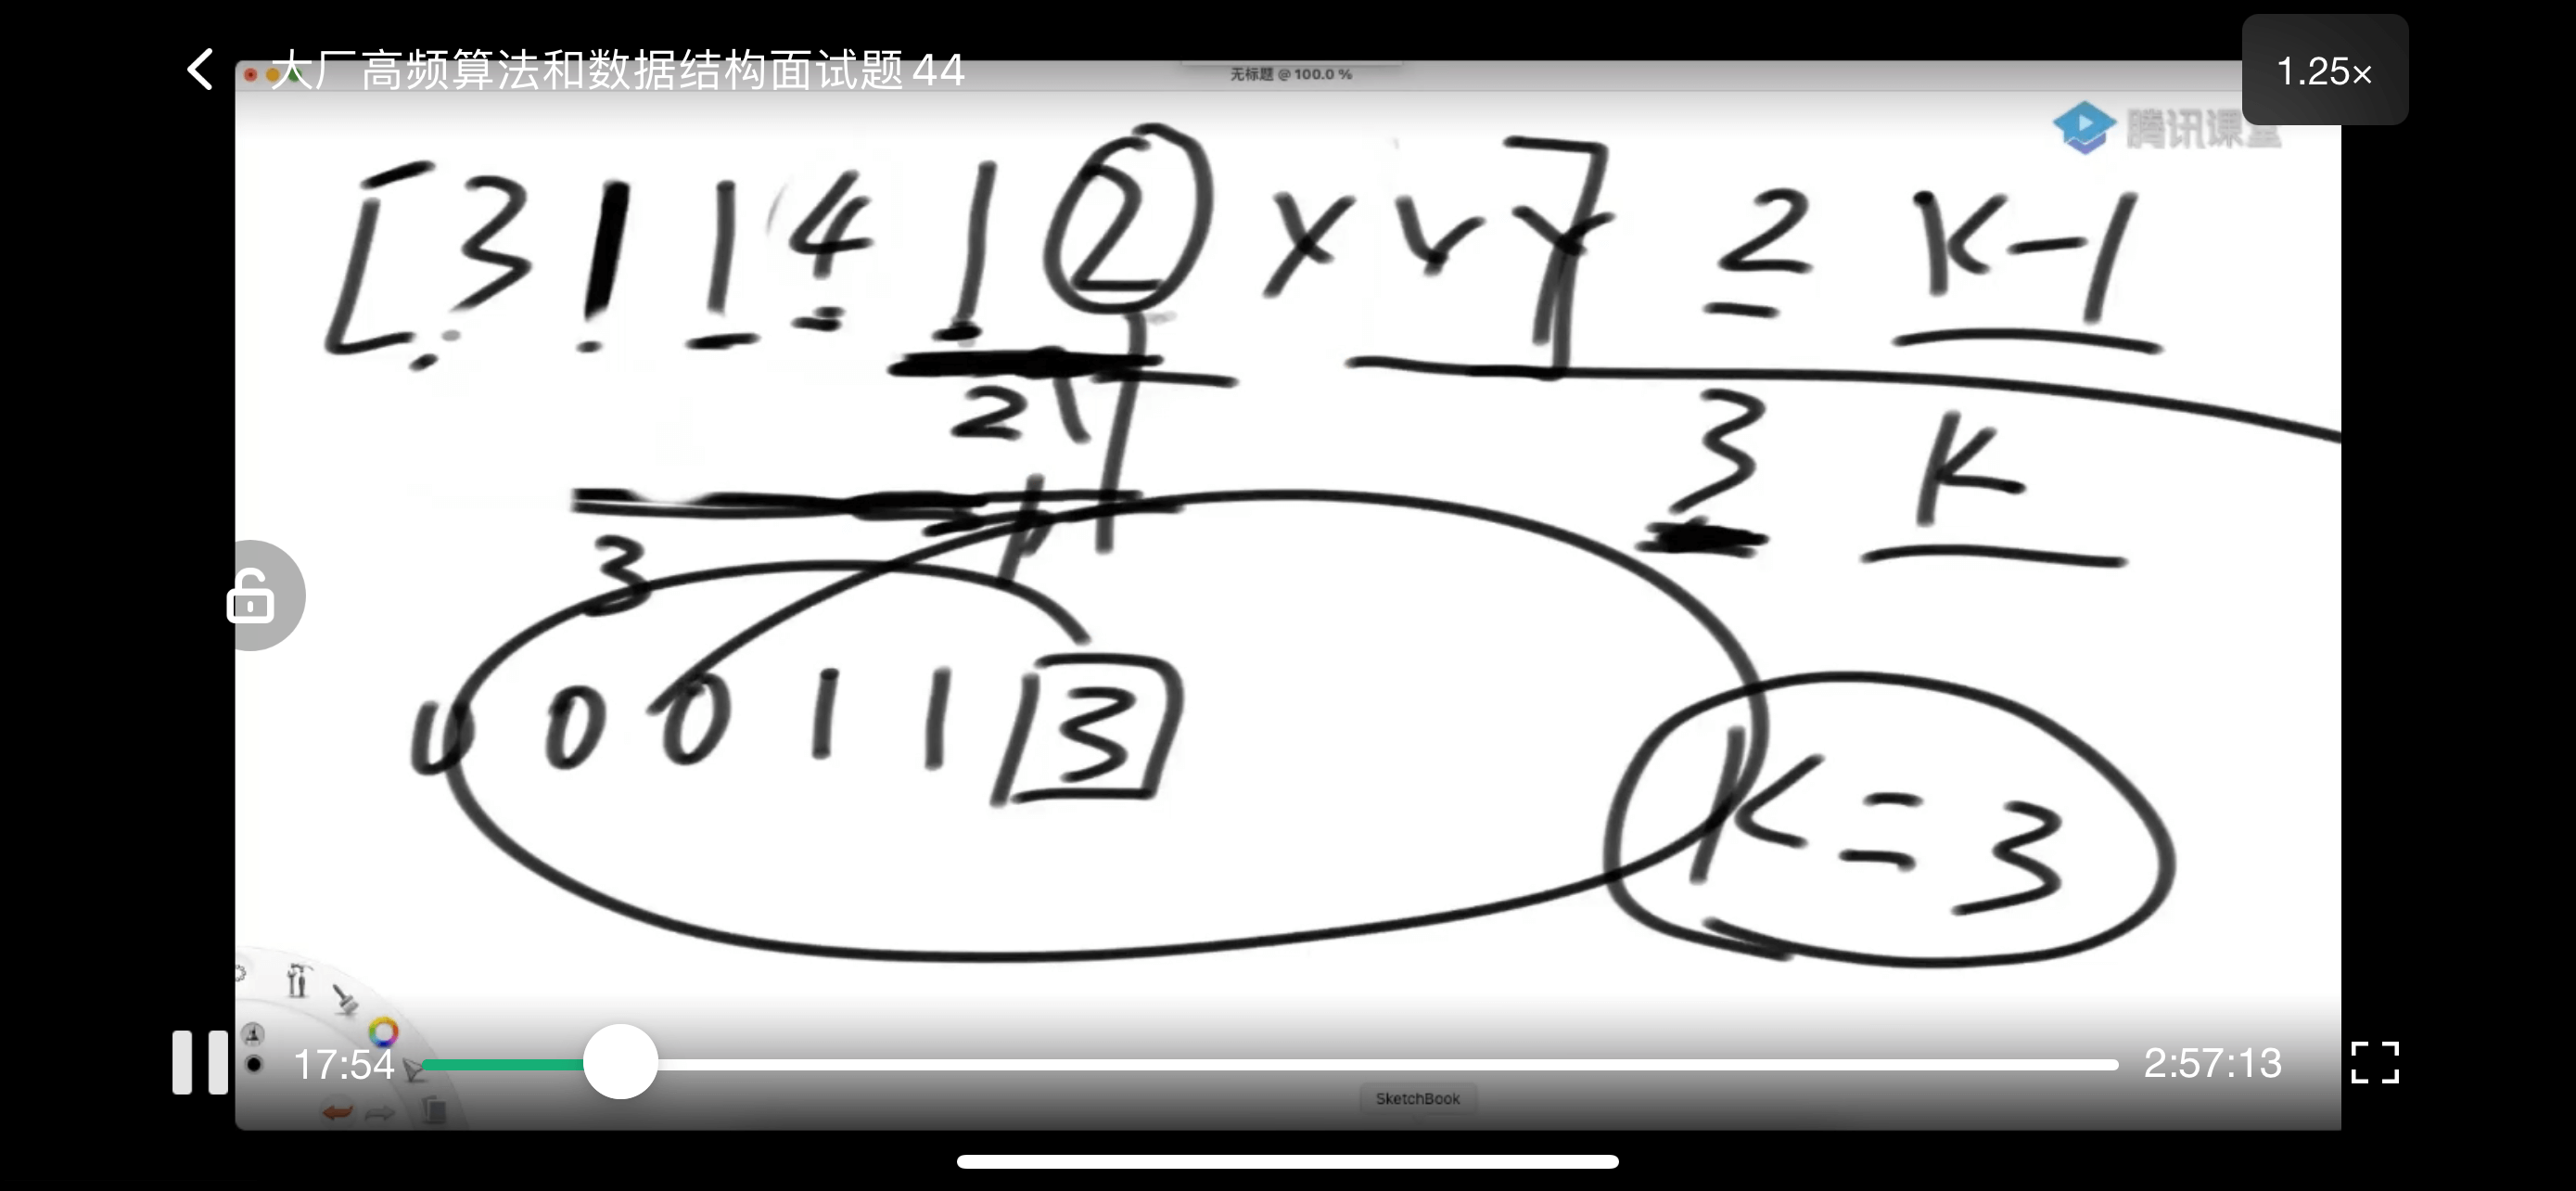 大厂高频算法和数据结构面试题44
无标题 @ 100.0 %
1.25×
腾讯课堂
[3 1 1 4 1 2 x y y] 2 K-1
2
3 K
3
0 0 0 1 1 3
K=3
17:54
2:57:13
SketchBook